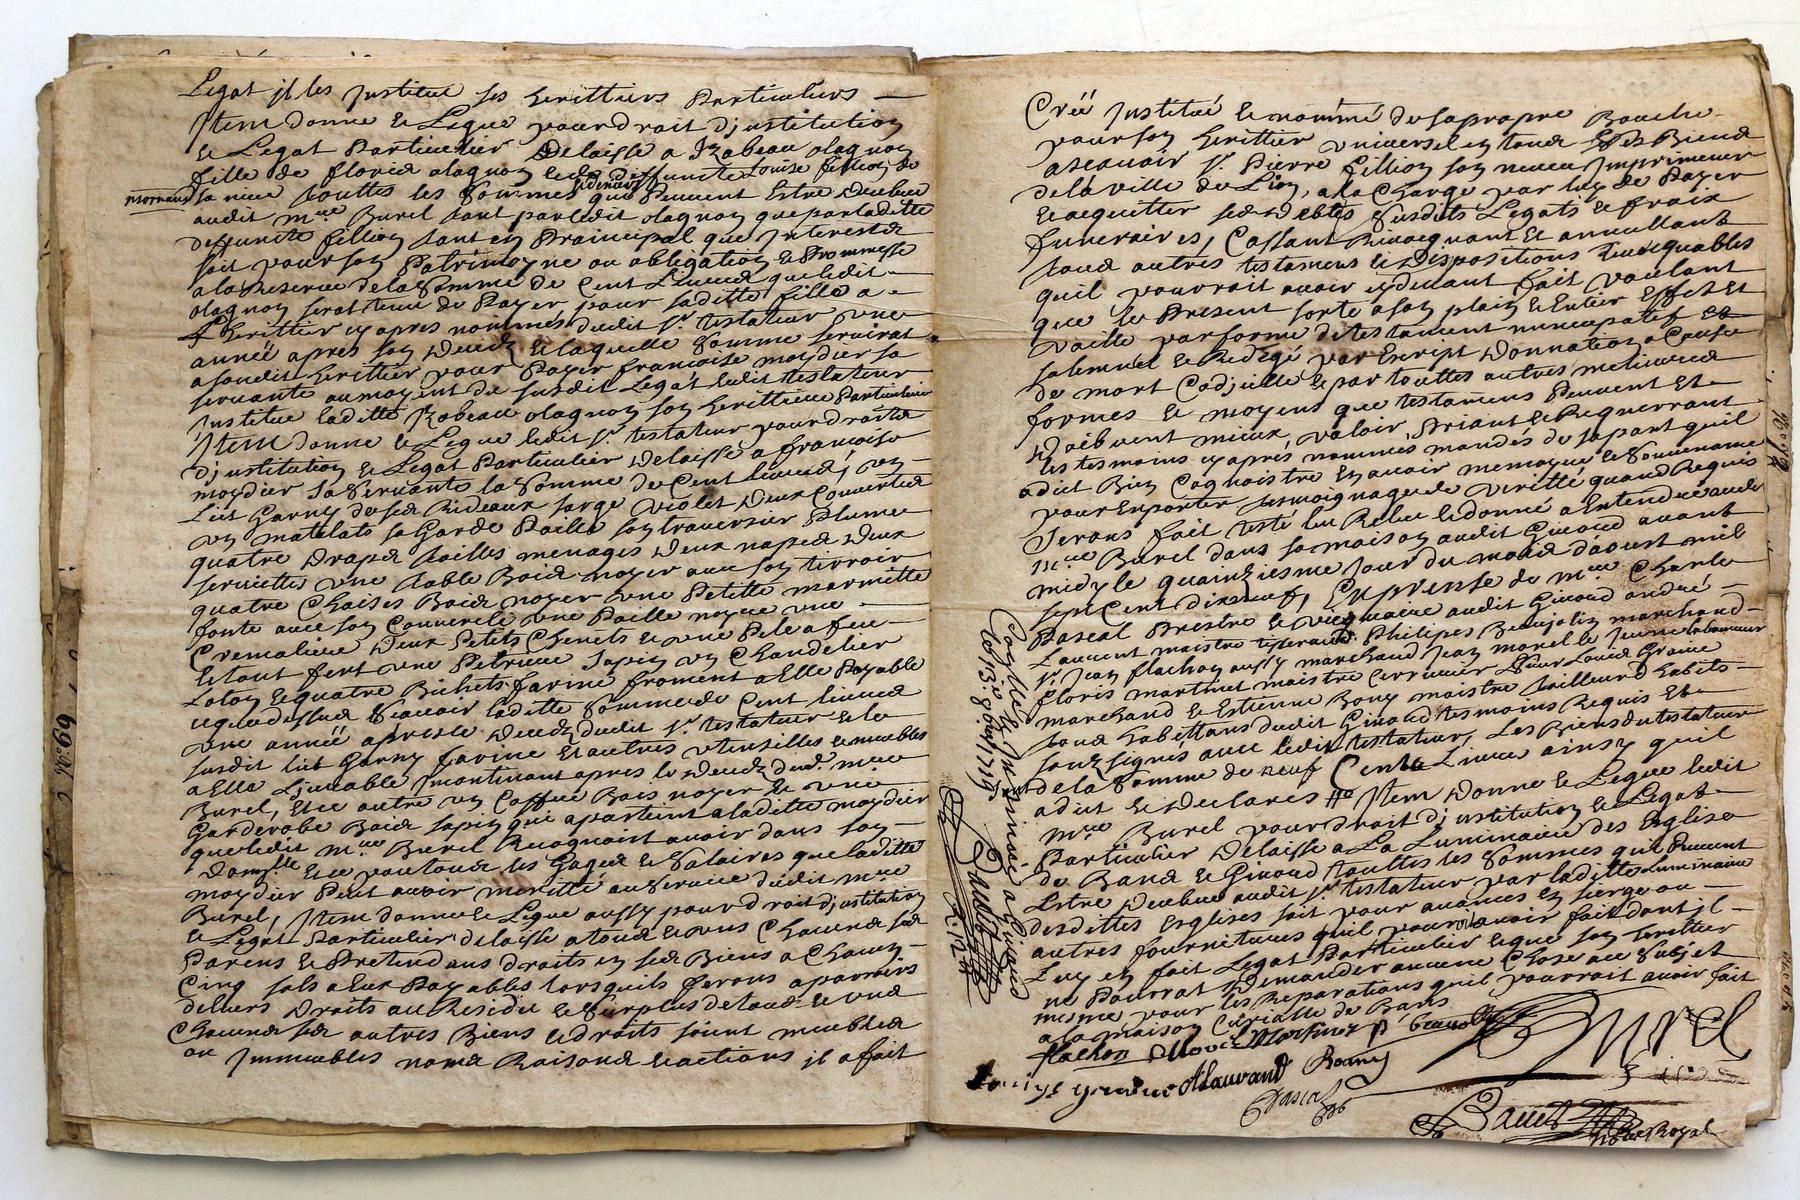 Legat jl les Jnstitue ses heritiers Particuliers
Jtem donne & Legue pour droit djnstitution
& Legat Particulier Delaisse a Jzabeau olagnon
fille de florid olagnon & de deffuncte Louise fillion
sa niece touttes les sommes & denrées que Peuvent Estre deubue
audit mre Burel tant par ledit olagnon que par laditte
deffuncte fillion tant en Prainsipal que Jnterestz
soit pour son Patrimoyne ou obligation & Prommesse
a la Reserve de la somme de Cent Liures que ledit
olagnon serat tenu de Payer pour saditte fille a
L'heritier cy apres nommés dudit Sr testateur une
année apres son decedz & laquelle somme servirat
a soudit heritier pour Payer francoise moydier sa
servante au moyent du susdit Legat ledit testateur
Jnstitue laditte Jzabeau olagnon son heritiere Particuliere
Jtem donne & Legue ledit Sr testateur pour droit
djnstitution & Legat Particulier delaisse a francoise
moydier sa servante la somme de Cent liures, un
Lict Garny de ses Rideaux sarge violet deux Couvertes
un mattelats sa Garde Paille son traversier Plume
quatre draps tailles menages deux napes deux
serviettes une table Bois noyer avec son tirroir
quatre Chaises Bois noyer une Petitte marmitte
fonte avec son Couvercle une Paille noyere une
Cremaliere deux Petits Chenets & une Pele a feu
le tout fert une Petriere sapin un Chandelier
Loton & quatre Bichets farine froment a Elle Payable
ce que dessus scavoir laditte somme de Cent liures
une année apres le decedz dudit Sr testateur & le
susdit lict Garny farine Et autres utensilles & meubles
a Elle Livrable Jncontinant apres le decedz dud. mre
Burel, & en outre un Coffre Bois noyer & une
Garderobe Bois sapin qui apartient a laditte moydier
que ledit mre Burel Recognoist avoir dans son
dom.lle & ce pour tous les Gages & salaires que laditte
moydier Peut avoir meritté au service dudit mre
Burel, Jtem donne & Legue aussy pour droit djnstitution
& Legat Particulier delaisse a tous & uns Chacuns ses
Parens & Pretendans droits en ses Biens a Chacun
Cinq sols a Eux Payables lorsquils ferons aparroirs
de leurs droits au Residu & surplus de tous & uns
Chacuns ses autres Biens & droits soient meubles
ou Jmmeubles noms Raisons & actions jl a fait
Créé Jnstitué & nommé de sa propre Bouche
pour son heritier universel en tous ses Biens
a scauoir Sr Pierre fillion son neveu Jmprimeur
de la ville de Lion, a la Charge par luy de Payer
& acquitter ses debtes susdits Legats & fraix
funeraires, Cassant Revocquant & annullant
tous autres testamens & dispositions Revocquables
quil pourroit avoir cy devant fait voulant
que le Present sorte a son plain & Entier Effet Et
vaille par forme de testament nuncupatif Et
solemnel & Redigé par Escript donnation a Cause
de mort Codjcille & par touttes autres meilieures
formes & moyens que testamens Peuvent Et
doibvent mieux, valoir, Priant & Requerrant
les tesmoins cy apres nommés mandés de sa part quil
a dict Bien Cognoistre En avoir memoyre & souvenance
pour Enporter tesmoignage de veritté quand Requis
Serons fait testé leu Releu & donné a Entendre audit
mre Burel dans sa maison audit Giraud avant
midy le quainziesme Jour du mois d'aoust mil
sept Cent dixneuf, En presense de mre Charle
Pascal Prestre & vicquaire audit Giraud andré
Laurent maistre tisserand Philipes Beaujolin marchand
Sr Jean flachon aussy marchand Jean morel le Jeune laboureur
floris martinet maistre serrurier Sieur Louis Graine
marchand & Estienne Bony maistre tailleur d habits
tous habittans dudit Giraud tesmoins Requis Et
souzsignés avec ledit testateur, Les Biens du testateur
de la somme de neuf Cents Liures ainsy quil
a dict & declares Jtem donne & Legue ledit
mre Burel pour droit djnstitution & Legat
Particulier delaisse a La Luminaire des Eglises
de Bans & Giraud touttes les sommes qui Peuvent
Estre deubue audit Sr testateur par laditte Luminaire
desdittes Eglises soit pour avances en sierge ou
autres fournitures quil pourroit avoir fait dont jl
Luy en fait Legat Particulier & que son heritier
ne Pourrat demander aucune Chose au subjet
mesmes pour les Reparations quil pourrait avoir fait
a la maison Curialle de Bans
flachon Morel Martinet
Burel
Louise graine ALaurand Bony
Pascal
Bauet
no.re Royal